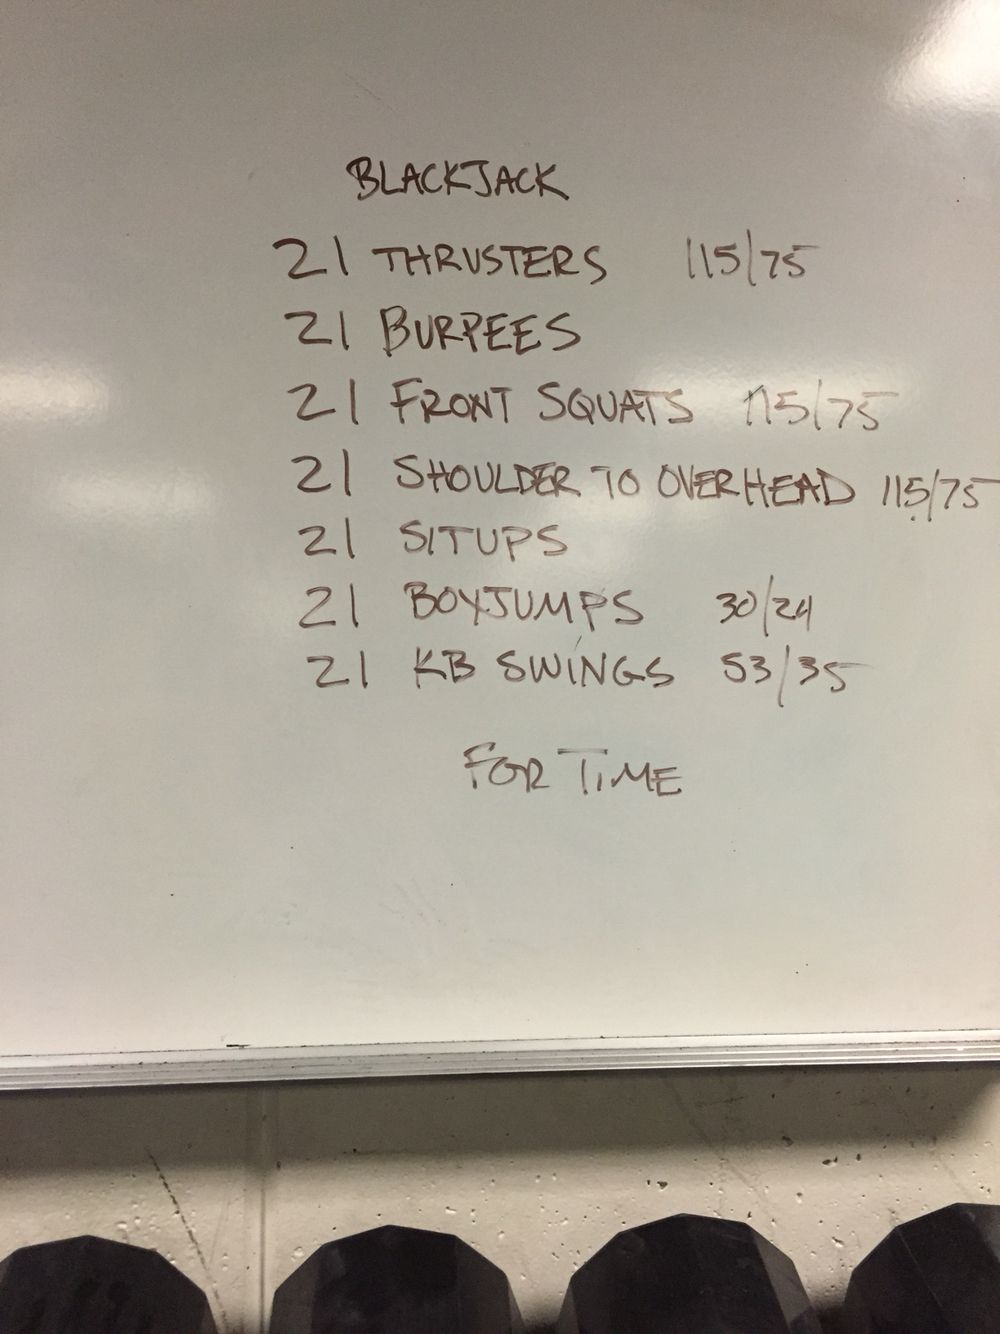 BLACKJACK
21 THRUSTERS 115/75
21 BURPEES
21 FRONT SQUATS 115/75
21 SHOULDER TO OVERHEAD 115/75
21 SITUPS
21 BOXJUMPS 30/24
21 KB SWINGS 53/35
FOR TIME